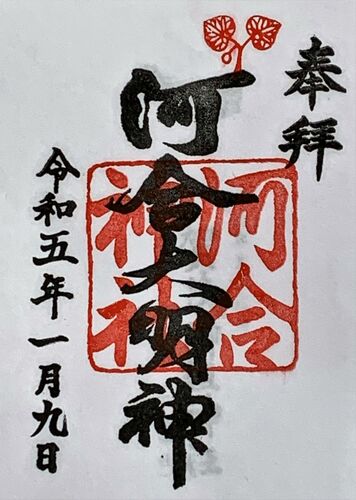 奉拝
河合大明神
河合
神社
令和五年一月九日